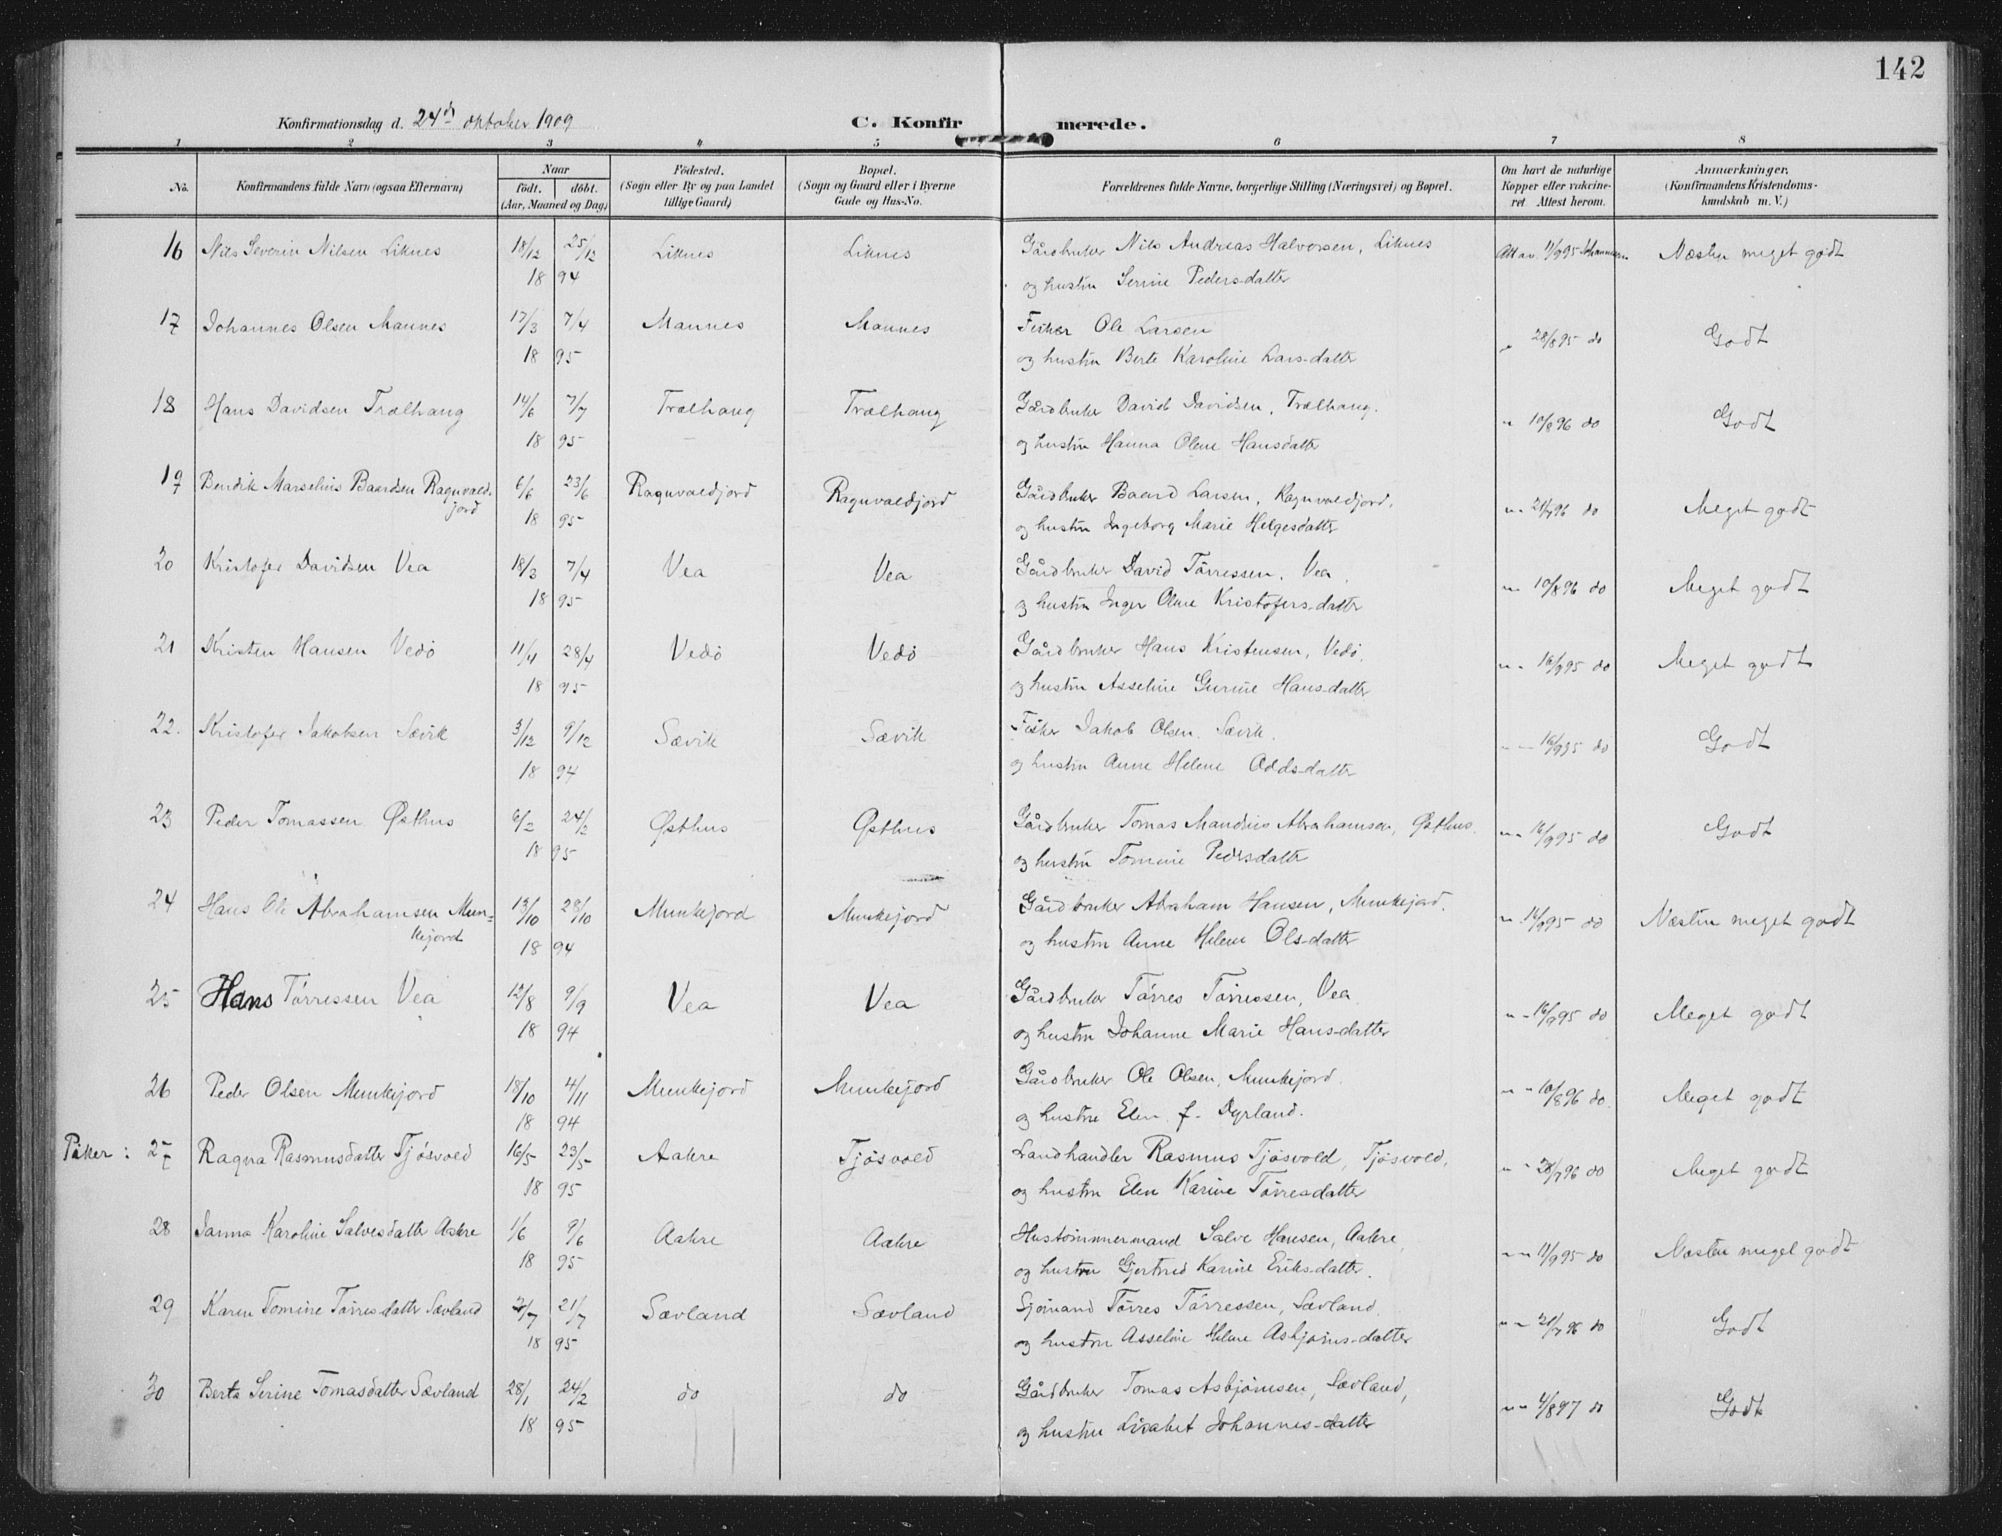 142
Konfirmationsdag d. 24de oktober 1909 C. Konfirmerede.
1 2 3 4 5 6 7 8
No. Konfirmandens fulde Navn (ogsaa Efternavn) Naar födt. döbt. (Aar, Maaned og Dag) Födested. (Sogn eller By og paa Landet tillige Gaard) Bopæl. (Sogn og Gaard eller i Byerne Gade og Hus-No. Forældrenes fulde Navne, borgerlige Stilling (Næringsvei) og Bopæl. Om havt de naturlige Kopper eller vakcineret. Attest herom. Anmærkninger. (Konfirmandens Kristendomskundskab m. V.)
16 Nils Severin Nilsen Liknes 18/12 25/12 Liknes Liknes Gårdbruker Nils Andreas Halvorsen, Liknes Att av. 11/9 95 Næsten meget godt
18 94 og hustru Serine Pedersdatter
17 Johannes Olsen Mannes 17/3 7/4 Mannes Mannes Fisker Ole Larsen " 28/8 95 do Godt
18 95 og hustru Berte Karoline Lars-datter
18 Hans Davidsen Trælhaug 14/6 7/7 Trælhaug Trælhaug Gårdbruker David Davidsen, Trælhaug. " 10/8 96 do Godt
18 95 og hustru Hanna Olene Hansdatter
19 Bendik Marselius Baardsen Ragnvaldjord 6/6 23/6 Ragnvaldjord Ragnvaldjord Gårdbruker Baard Larsen, Ragnvaldjord, " " 21/7 96 do Meget godt
18 95 og hustru Ingeborg Marie Helgesdatter
20 Kristofer Davidsen Vea 18/3 7/4 Vea Vea Gårdbruker David Törressen, Vea, " 10/8 96 do Meget godt
18 95 og hustru Inger Oline Kristofers-datter
21 Kristen Hansen Vedö 11/4 28/4 Vedö Vedö Gårdbruker Hans Kristensen, Vedö, " " 16/9 95 do Meget godt
18 95 og hustru Asseline Gurine Hans-datter
22. Kristofer Jakobsen Sævik 3/12 9/12 Sævik Sævik Fisker Jakob Olsen. Sævik. " " 16/9 95 do Godt
18 94 og hustru Anne Helene Odds-datter
23 Peder Tomassen Østhus 6/2 24/2 Østhus Østhus Gårdbruker Tomas Mandius Abrahamsen, Østhus. " " 16/9 95 do Godt
18 95 og hustru Tomine Pedersdatter
24 Hans Ole Abrahamsen Munkejord 13/10 28/10 Munkejord Munkejord Gårdbruker Abraham Hansen, Munkejord. " 16/9 95 do Næsten meget godt
18 94 og hustru Anne Helene Ols-datter
25 Hans Törressen Vea 12/8 9/9 Vea Vea Gårdbruker Törres Törressen, Vea " " 16/9 95 do Meget godt
18 94 og hustru Johanne Marie Hans-datter
26 Peder Olsen Munkejord 18/10 4/11 Munkejord Munkejord Gårdbruker Ole Olsen, Munkejord. " " 10/8 96 do. Meget godt
18 94 og hustru Elen f. Dyrland.
Piker: 27 Ragna Rasmusdatter Tjösvold 16/5 23/5 Aakre Tjösvold Landhandler Rasmus Tjösvold, Tjösvold, " " 28/7 96 do Meget godt
18 95 og hustru Elen Karine Törresdatter
28 Janna Karoline Salvesdatter Aakre 1/6 9/6 Aakre Aakre Hustömmermand Salve Hansen, Aakre, " " 11/9 95 do Næsten meget godt
18 95 og hustru Gjertrud Karine Eriks-datter.
29 Karen Tomine Törres-datter Sævland 21/7 Sævland Sævland Sjömand Törres Törressen, Sævland. " " 21/7 96 do Godt
18 95 og hustru Asseline Helene Asbjörns-datter
30 Berta Serine Tomasdatter Sævland 28/1 24/2 do do Gårdbruker Tomas Asbjörnsen, Sævland, " " 4/8 97 do Godt
18 95 og hustru Lisabet Johannes-datter